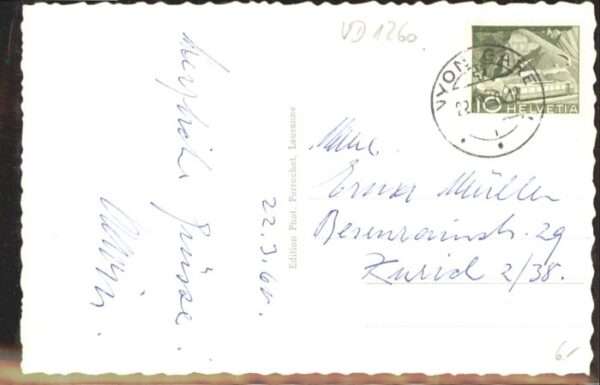 VD 1260.
NYON GARE
10 HELVETIA
Herzliche Grüsse.
22.3.60.
Edition Phot. Perrochet, Lausanne
Erika Müller
Besenrainstr. 29
Zürich 2/38.
6.-